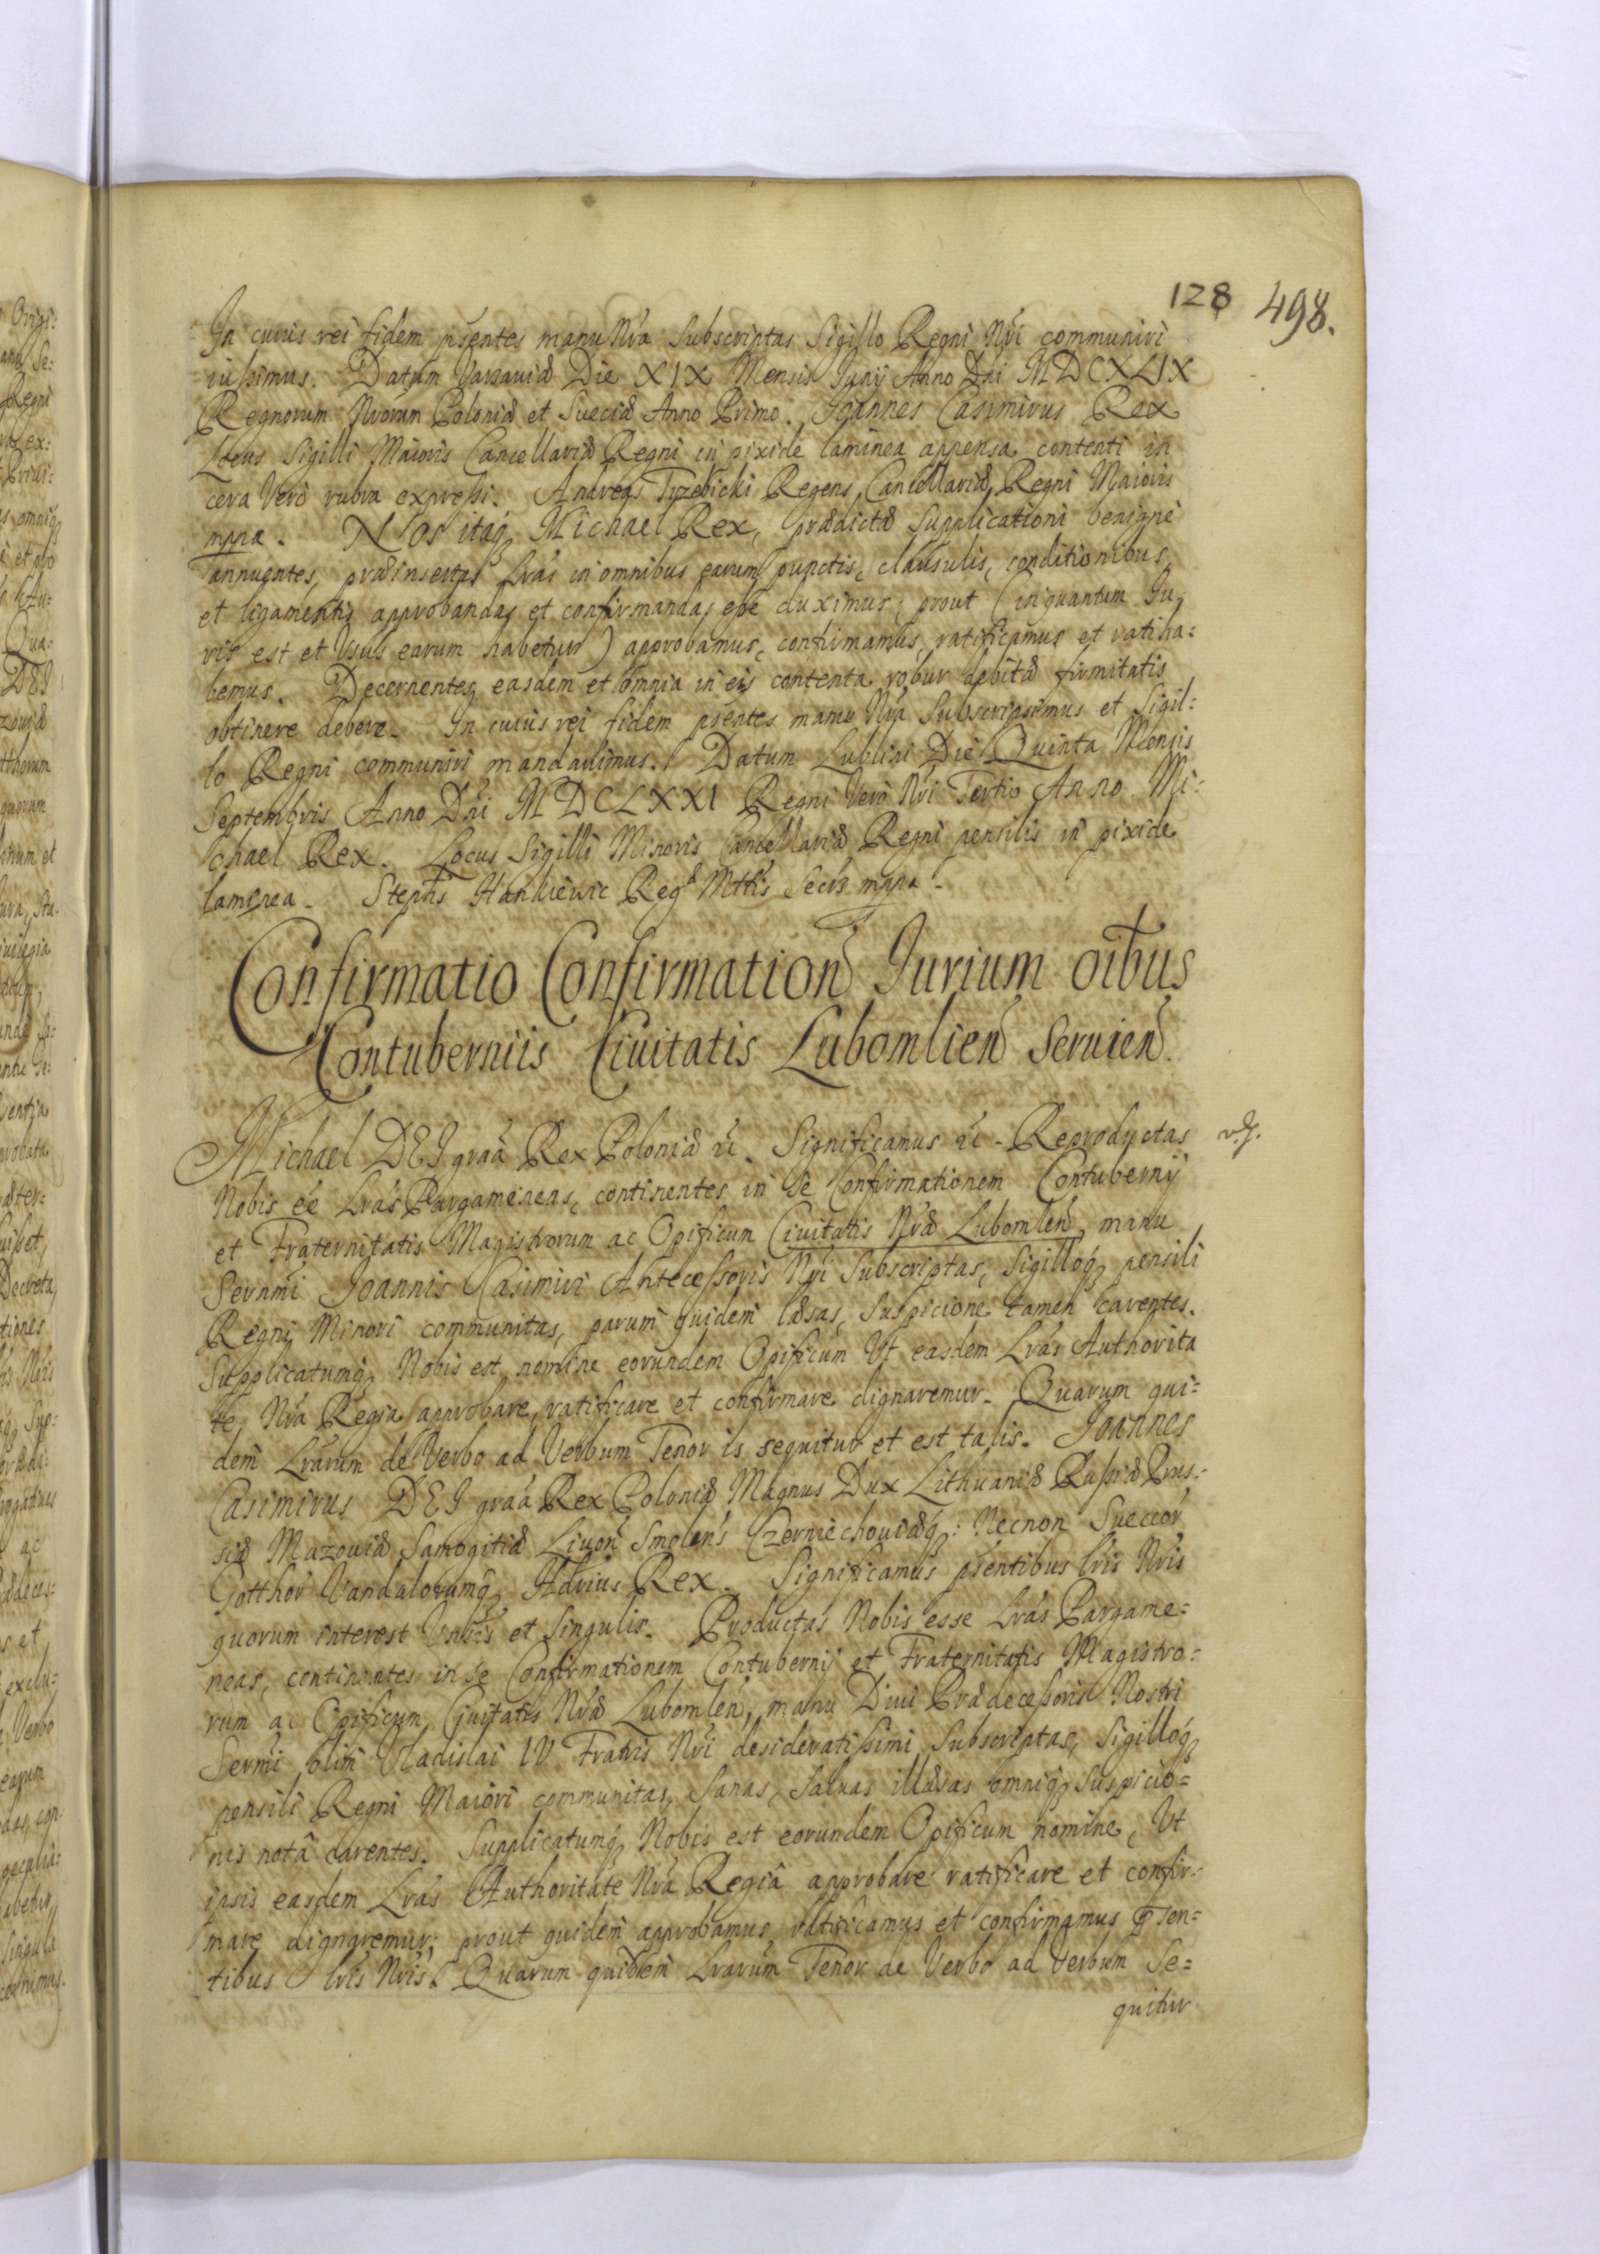 128 498.
In cuius rei fidem pńtes manu Nra Subscriptas Sigillo Regni Nri communiri
iussimus. Datum Varsaviæ Die XIX Mensis Junij Anno Dni MDCXLIX
Regnorum Nrorum Poloniæ et Sueciæ Anno Primo. Joannes Casimirus Rex
Locus Sigilli Maioris Cancellariæ Regni in pixide laminea appensa contenti in
cera Vero rubra expressi. Andreas Trzebicki Regens Cancellariæ Regni Maioris
mppa. Nos itaq Michael Rex, prædictæ Supplicationi benigne
annuentes, præinsertas Lras in omnibus earum punctis, clausulis, conditionibus,
et ligamentis approbandas et confirmandas esse duximus; prout (in quantum Ju-
ris est et Usus earum habetur) approbamus, confirmamus, ratificamus et ratiha-
bemus. Decernentes easdem et omnia in eis contenta robur debitæ firmitatis
obtinere debere. In cuius rei fidem pńtes manu Nra Subscripsimus et Sigil-
lo Regni communiri mandavimus. Datum Lublini Die Quinta Mensis
Septembris Anno Dni MDCLXXI Regni Vero Nri Tertio Anno. Mi-
chael Rex. Locus Sigilli Minoris Cancellariæ Regni pensilis in pixide
laminea. Stephs Hankiewic Regæ Mttis Secrs mppa.
Confirmatio Confirmation Jurium oibus
Contuberniis Civitatis Lubomlien Servien.
Michael DEI graa Rex Poloniæ &c. Significamus &c. Reproductas
Nobis ee Lras Pargameneas, continentes in se Confirmationem Contubernij
et Fraternitatis Magistrorum ac Opificum Civitatis Nræ Lubomlen, manu
Sernmi Joannis Casimiri Antecessoris Nri Subscriptas, Sigilloq pensili
Regni Minori communitas, parum quidem læsas, Suspicione tamen carentes.
Supplicatumq Nobis est nomine eorundem Opificum Ut easdem Lras Authorita
te Nra Regia approbare, ratificare et confirmare dignaremur. Quarum qui-
dem Lrarum de Verbo ad Verbum Tenor is sequitur et est talis. Joannes
Casimirus DEI graa Rex Poloniæ Magnus Dux Lithuaniæ Russiæ Prus-
siæ Mazoviæ Samogitiæ Livon Smolens Czerniechoviæq: Necnon Sueccor
Gotthor Vandalorumq Hdrius Rex. Significamus pńtibus Lris Nris
quorum interest Unisis et Singulis. Productas Nobis esse Lras Pargame-
neas, continentes in se Confirmationem Contubernij et Fraternitatis Magistro-
rum ac Opificum Civitatis Nræ Lubomlen, manu Divi Prædecessoris Nostri
Sermi olim Vladislai IV Fratris Nri desideratissimi Subscriptas, Sigilloq
pensili Regni Maiori communitas, Sanas, Salvas illæsas omniq Suspicio-
nis notâ carentes. Supplicatumq Nobis est eorundem Opificum nomine, Ut
ipsis easdem Lras Authoritate Nra Regiâ approbare ratificare et confir-
mare dignaremur; prout quidem approbamus ratificamus et confirmamus psen-
tibus Lris Nris. Quarum quidem Lrarum Tenor de Verbo ad Verbum Se-
quitur